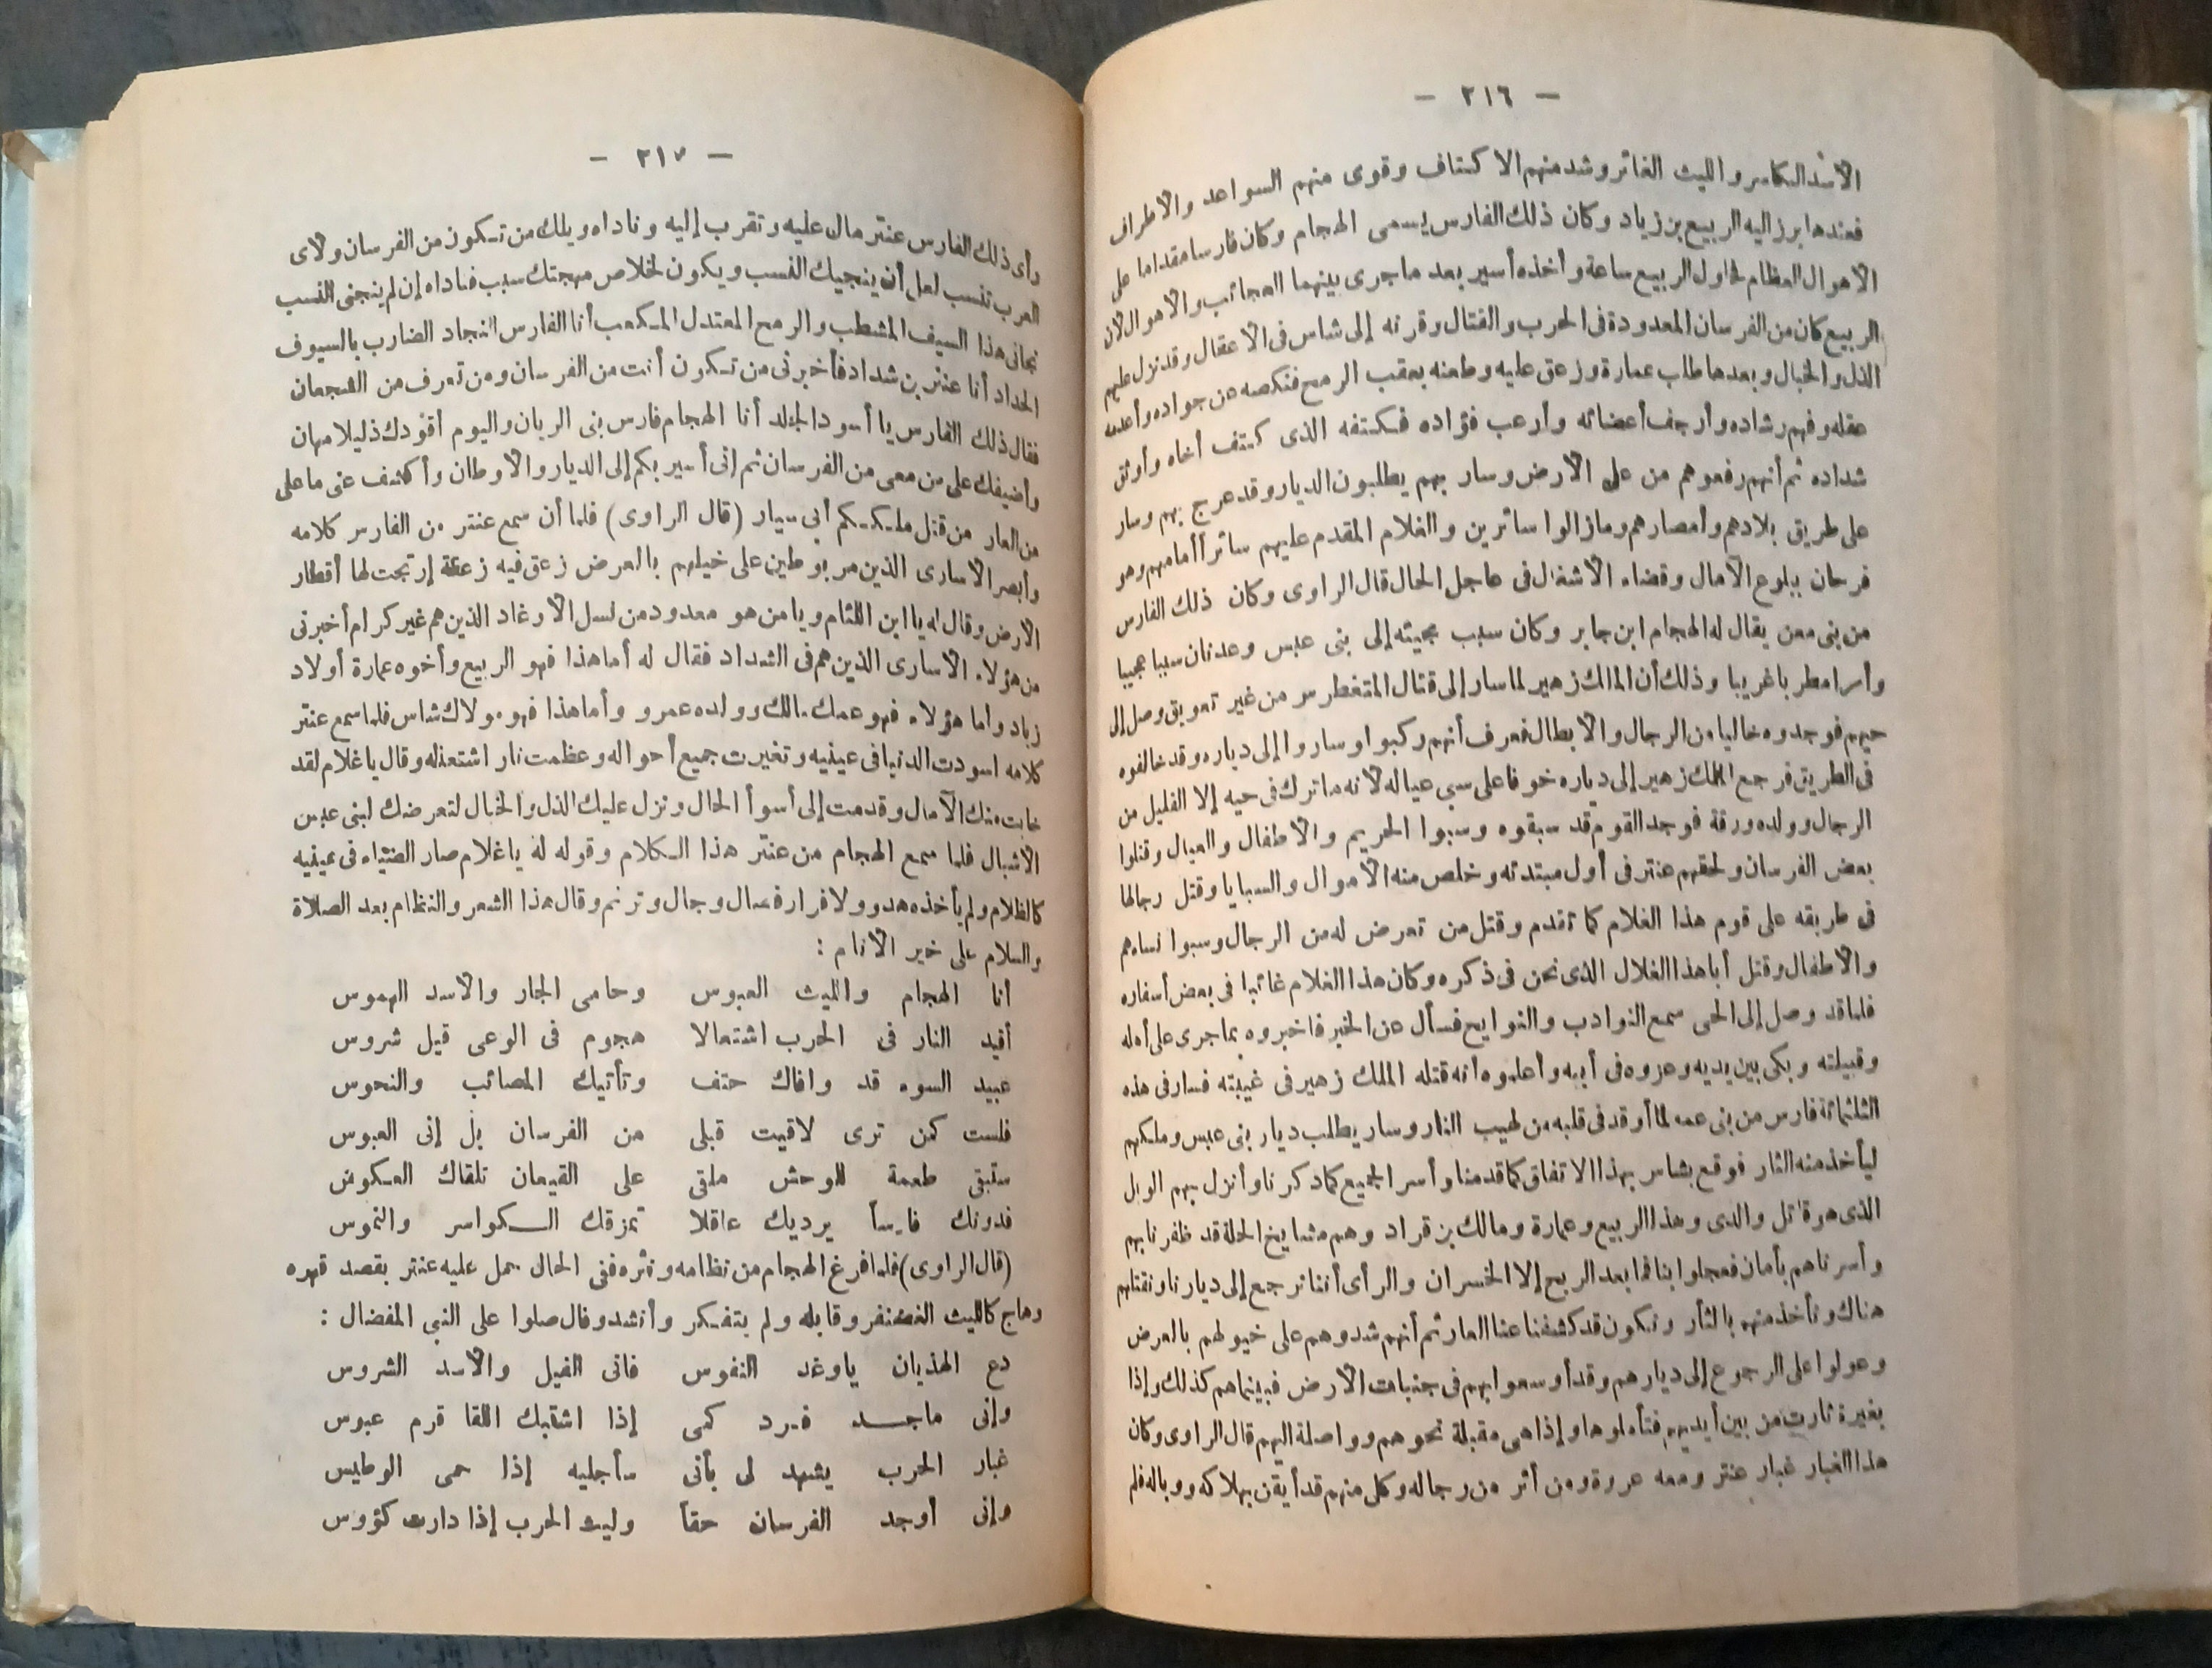 — ٢١٦ —
الأسد الكاسر والليث الغائر وشد منهم الاكتاف وقوى منهم السواعد والاطراف
فعندها برز اليه الربيع بن زياد وكان ذلك الفارس يسمى الهجام وكان فارسا مقداما على
الاهوال العظام فحاول الربيع ساعة وأخذه أسير بعد ماجرى بينهما العجائب والاهوال لأن
الربيع كان من الفرسان المعدودة فى الحرب والقتال وقرنه إلى شاس فى الاعقال وقد نزل عليهم
الذل والخبال وبعدها طلب عمارة وزعق عليه وطعنه بعقب الرمح فنكصه عن جواده وأعدمه
عقله وفهم رشاده وأرجف أعضائه وأرعب فؤاده فكتفه الذى كتف أخاه وأوثق
شداده ثم أنهم رفعوهم من على الأرض وسار بهم يطلبون الديار وقد عرج بهم وسار
على طريق بلادهم وأمصارهم ومازالوا سائرين والغلام المقدم عليهم سائراً أمامهم وهو
فرحان ببلوع الآمال وقضاء الاشغال فى عاجل الحال قال الراوى وكان ذلك الفارس
من بنى معن يقال له الهجام ابن جابر وكان سبب مجيئه إلى بنى عبس وعدنان سببا عجيبا
وأمرا مطربا غريبا وذلك أن الملك زهير لما سار إلى قتال المتغطرس من غير تعويق وصل إلى
حيهم فوجدوه خاليا من الرجال والابطال فعرف أنهم ركبوا وساروا إلى دياره وقد خالفوه
فى الطريق فرجع الملك زهير إلى دياره خوفا على سبى عياله لانه ماترك فى حيه إلا القليل من
الرجال وولده ورقة فوجد القوم قد سبقوه وسبوا الحريم والاطفال والعيال وقتلوا
بعض الفرسان ولحقهم عنتر فى أول مبتدئه وخلص منه الأموال والسبايا وقتل رجالها
فى طريقه على قوم هذا الغلام كما تقدم وقتل من تعرض له من الرجال وسبوا نساءهم
والاطفال وقتل أبا هذا الغلال الذى نحن فى ذكره وكان هذا الغلام غائبا فى بعض أسفاره
فلما قد وصل إلى الحى سمع النوادب والنوايح فسأل عن الخبر فاخبروه بماجرى على أهله
وقبيلته وبكى بين يديه وعزوه فى أبيه وأعلموه أنه قتله الملك زهير فى غيبته فسار فى هذه
الثلثمائة فارس من بنى عمه لما أوقد فى قلبه من لهيب النار وسار يطلب ديار بنى عبس وملكهم
ليأخذ منه الثار فوقع بشاس بهذا الاتفاق كما قدمنا وأسر الجميع كما ذكرنا وأنزل بهم الوبل
الذى هو قاتل والدى وهذا الربيع وعمارة ومالك بن قراد وهم مشايخ الحلة قد ظفرنا بهم
وأسرناهم بأمان فعجلوا بنا فما بعد الربح إلا الخسران والرأى أننا نرجع إلى ديارنا ونقتلهم
هناك ونأخذ منهم بالثأر ونكون قد كشفنا عنا العار ثم أنهم شدوهم على خيولهم بالعرض
وعولوا على الرجوع إلى ديارهم وقد أوسعوا بهم فى جنبات الأرض فبينماهم كذلك وإذا
بغيرة ثارت من بين أيديهم فتأملوها وإذا هى مقبلة نحوهم وواصلة اليهم قال الراوى وكان
هذا الغبار غبار عنتر ومعه عروة ومن أثر من رجاله وكل منهم قد أيقن بهلاكه ووباله فلم
— ٢١٧ —
رأى ذلك الفارس عنتر مال عليه وتقرب إليه وناداه ويلك من تكون من الفرسان ولاى
العرب تنسب لعل أن ينجيك النسب ويكون لخلاص مهجتك سبب فناداه إن لم ينجنى النسب
نجانى هذا السيف المشطب والرمح المعتدل المكعب أنا الفارس النجاد الضارب بالسيوف
الحداد أنا عنتر بن شداد فأخبرنى من تكون أنت من الفرسان ومن تعرف من الشجعان
فقال ذلك الفارس يا أسود الجلد أنا الهجام فارس بنى الريان واليوم أقودك ذليلا مهان
وأضيفك على من معى من الفرسان ثم انى أسير بكم إلى الديار والاوطان وأكشف عنى ما على
من العار من قبل مليككم أبى سيار (قال الراوى) فلما أن سمع عنتر من الفارس كلامه
وأبصر الأسارى الذين مربوطين على خيلهم بالعرض زعق فيه زعقة إرتجت لها أقطار
الارض وقال له يا ابن اللئام ويا من هو معدود من نسل الاوغاد الذين هم غير كرام أخبرنى
من هؤلاء الاسارى الذين هم فى الشداد فقال له أما هذا فهو الربيع وأخوه عمارة أولاد
زياد وأما هؤلاء فهو عمك مالك وولده عمرو وأما هذا فهو مولاك شاس فلما سمع عنتر
كلامه اسودت الدنيا فى عينيه وتغيرت جميع أحواله وعظمت نار اشتعاله وقال يا غلام لقد
خابت منك الآمال وقدمت إلى أسوأ الحال ونزل عليك الذل والخبال لتعرضك لبنى عبس
الاشبال فلما سمع الهجام من عنتر هذا الكلام وقوله له يا غلام صار الضياء فى عينيه
كالظلام ولم يأخذه هدو ولا قرار فسال وجال وترنم وقال هذا الشعر والنظام بعد الصلاة
والسلام على خير الأنام :
أنا الهجام والليث العبوس وحامى الجار والأسد الهموس
أقيد النار فى الحرب اشتعالا هجوم فى الوعى قيل شروس
عبيد السوء قد وافاك حتف وتأتيك المصائب والنحوس
فلست كمن ترى لاقيت قبلى من الفرسان بل إنى العبوس
ستبقى طعمة للوحش ملقى على القيعان تلقاك العكوض
فدونك فارساً يرديك عاقلا تمزقك الكواسر والنموس
(قال الراوى) فلما فرغ الهجام من نظامه ونثره ففى الحال حمل عليه عنتر بقصد قهره
وهاج كالليث الغضنفر وقابله ولم يتفكر وأنشد وقال صلوا على النبى المفضال :
دع الهذيان ياوغد النفوس فانى الفيل والأسد الشروس
وإنى ماجد فرد كمى إذا اشتبك اللقا قرم عبوس
غبار الحرب يشهد لى بأنى سأجليه إذا حمى الوطيس
وإنى أوجد الفرسان حقاً وليث الحرب إذا دارت كؤوس